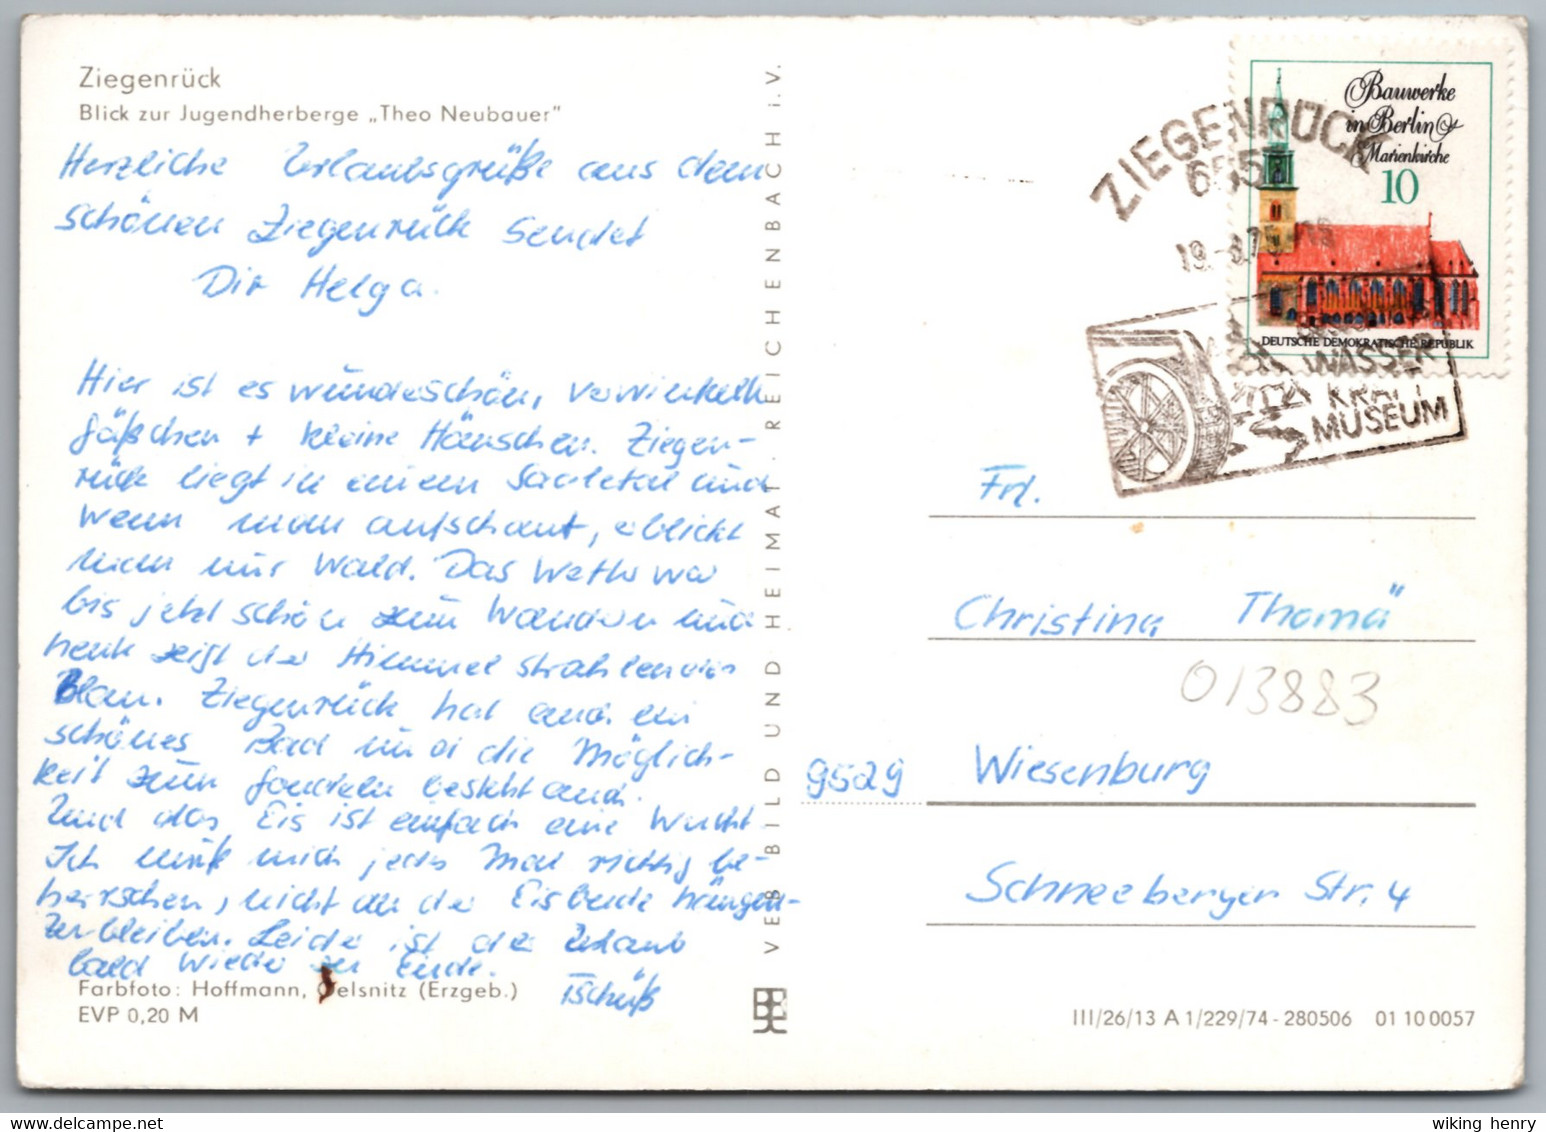 Ziegenrück
Blick zur Jugendherberge „Theo Neubauer"
Herzliche Urlaubsgrüße aus dem
schönen Ziegenrück sendet
Dir Helga.
Hier ist es wunderschön, verwinkelte
Gäßchen + kleine Häuschen. Ziegen-
rück liegt in einem Saaletal und
wenn man aufschaut, erblickt
man nur Wald. Das Wetter war
bis jetzt schön zum Wandern und
heute zeigt der Himmel strahlendes
Blau. Ziegenrück hat auch ein
schönes Bad und die Möglich-
keit zum Gondeln besteht auch.
Und das Eis ist einfach eine Wucht.
Ich muß mich jedes Mal richtig be-
herrschen, nicht an der Eisbude hängen-
zubleiben. Leider ist der Urlaub
bald wieder zu Ende.
Tschüß
Farbfoto: Hoffmann, Oelsnitz (Erzgeb.)
EVP 0,20 M
VEB BILD UND HEIMAT REICHENBACH i.V.
ZIEGENRÜCK
655
19.-8.75
WASSER
KRAFT
MUSEUM
Bauwerke
in Berlin
Marienkirche
10
DEUTSCHE DEMOKRATISCHE REPUBLIK
Frl.
Christina Thomä
013883
9529 Wiesenburg
Schneeberger Str. 4
III/26/13 A 1/229/74-280506 01 10 0057
wiking henry